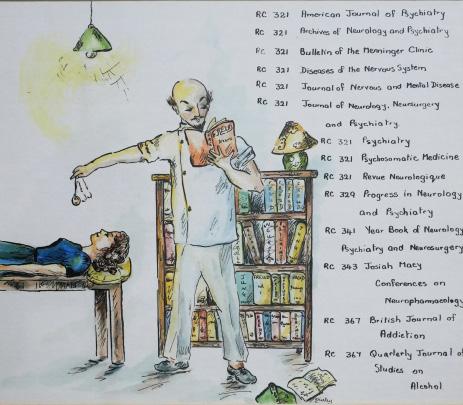 RC 321 American Journal of Psychiatry
RC 321 Archives of Neurology and Psychiatry
RC 321 Bulletin of the Menninger Clinic
RC 321 Diseases of the Nervous System
RC 321 Journal of Nervous and Mental Disease
RC 321 Journal of Neurology, Neurosurgery
and Psychiatry.
RC 321 Psychiatry
RC 321 Psychosomatic Medicine
RC 321 Revue Neurologique
RC 329 Progress in Neurology
and Psychiatry
RC 341 Year Book of Neurology
Psychiatry and Neurosurgery
RC 343 Josiah Macy
Conferences on
Neuropharmacology
RC 367 British Journal of
Addiction
RC 367 Quarterly Journal of
Studies on
Alcohol
FREUD